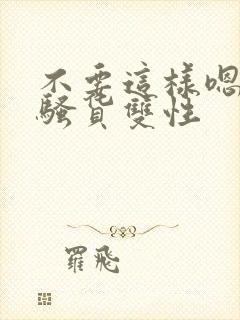 不要這樣嗯
騷貨雙性
羅飛